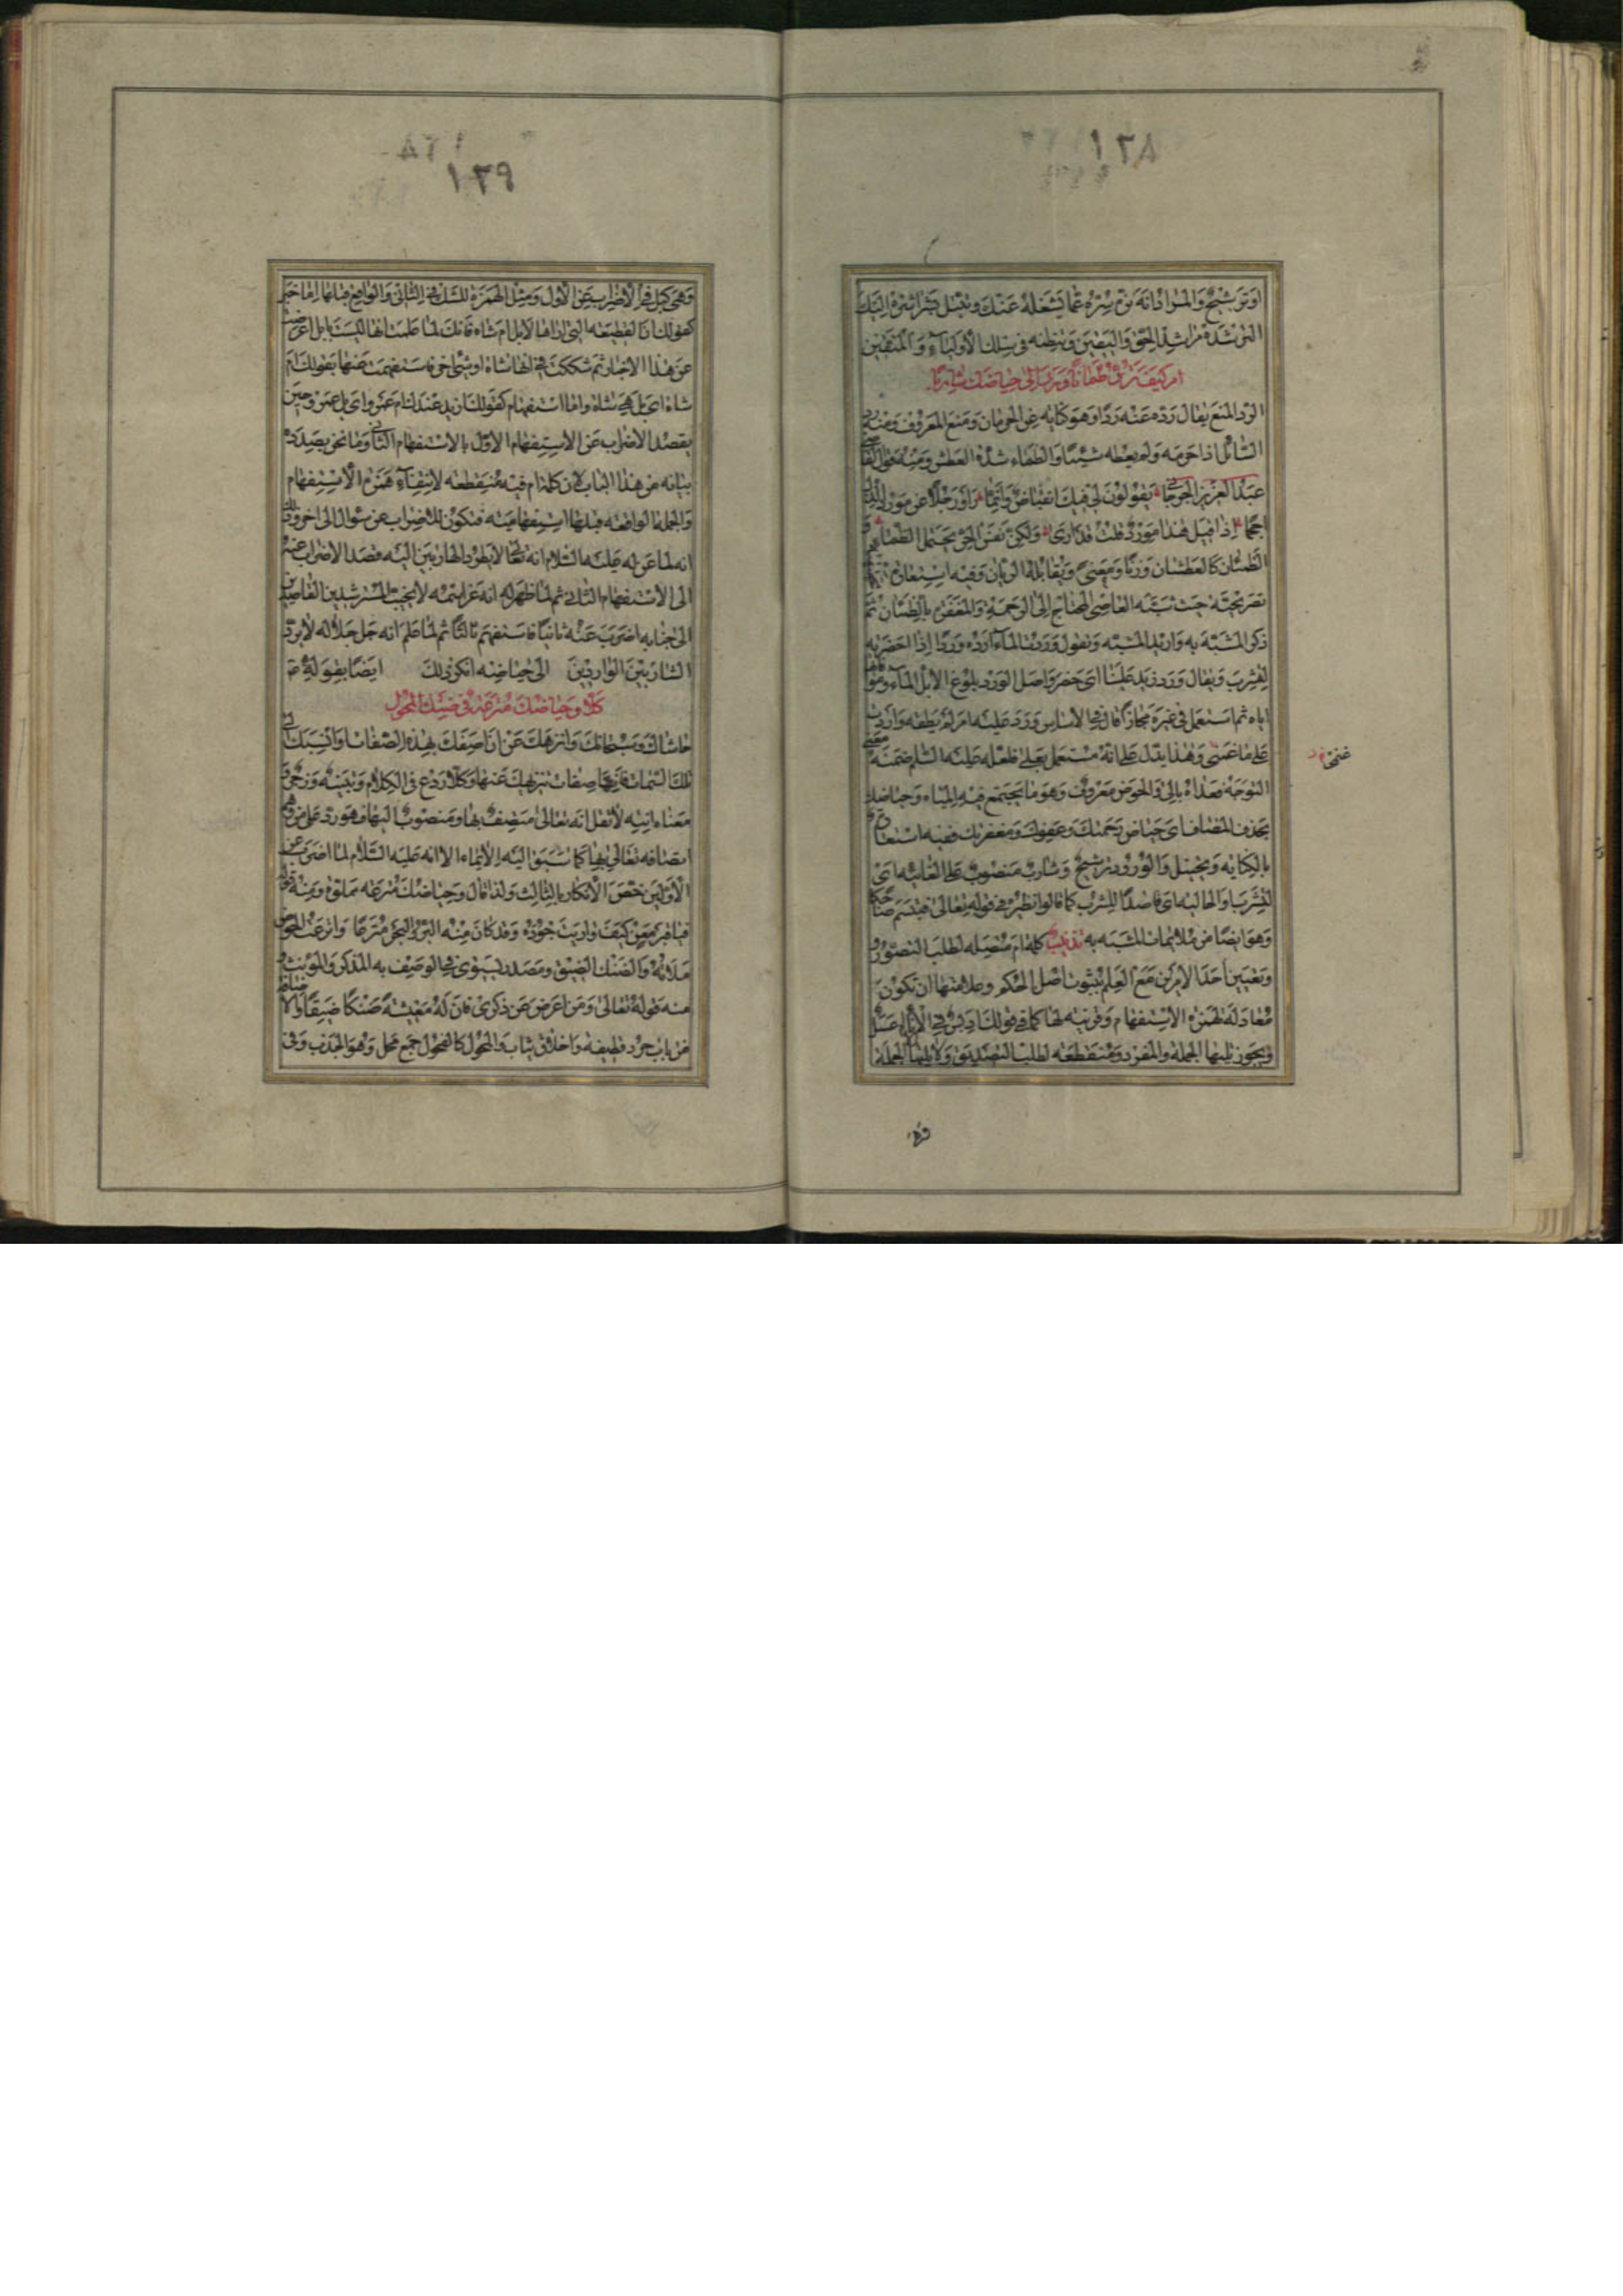 ١٢٨
او ترشيح والمراد انه
الترشده مراشد الحق واليقين وتنظمه في سلك الأولياء والمتقين
ام كيف ترد ظمآنا ورد الى حياضك شاربا
الرد المنع يقال رده عنه ردا وهو كناية عن الحرمان ومنع المعروف ومنه رد
السائل اذا حرمه ولم يعطه شيئا والظماء شدة العطش ومنه قول القاضي
عبد العزيز الجرجاني يقولون لي فيك انقباض وانما راوا رجلا عن موقف الذل
احجما اذا قيل هذا مورد قلت قد ارى ولكن نفس الحر تحتمل الظماء
الظمئان كالعطشان وزنا ومعنى ويقابله الريان وفيه استعارة
تصريحية حيث شبه العاصي المحتاج الى الرحمة والمغفرة بالظمئان ثم
ذكر المشبه به واريد المشبه وتقول وردت الماء ارده وردا اذا حضرته
لتشرب ويقال ورد زيد علينا اى حضر واصل الورد بلوغ الابل الماء
اياه ثم استعمل في غيره مجازا قال في الاساس ورد عليه امر لم يطقه
على ما وهذا يدل على انه مستعمل بعلى فلعله عليه السلام ضمنه معنى
التوجه فعداه بالى والحوض معروف وهو ما يجتمع فيه المياه وحياضك
بحذف المضاف اى حياض رحمتك وعفوك ومغفرتك ففيه استعارة
بالكناية وتخييل والورود ترشيح وشاربا منصوب على الغاية اى
لتشرب او الحالية اى قاصدا للشرب كما قالوا نظيره في قوله تعالى فتبسم ضاحكا
وهو ايضا من ملايمات المشبه به تذنيب كلمة ام متصلة لطلب التصور
وتعيين احد الامرين مع العلم بثبوت اصل الحكم وعلامتها ان تكون
معادلة لهمزة الاستفهام وقرينة لها كما في قولك ادبس في الاناء ام عسل
ويجوز يليها الجملة والمفرد ومنقطعة لطلب التصديق ولا يليها الا الجملة
١٢٩
وهي كبل في الاضراب عن الاول ومثل الهمزة للشك في الثاني والواقع قبلها اما خبر
كقولك ان القطيعة التي اراها لابل ام شاة فانك لما علمت انها ليست بابل اعرضت
عن هذا الاخبار ثم شككت في انها شاة او شئ اخر فاستفهمت عنها بقولك ام
شاة اى بل هي شاة واما استفهام كقولك ازيد عندك ام عمرو اى بل عمرو وحين
يقصد الاضراب عن الاستفهام الاول بالاستفهام الثاني وما نحن بصدده
بيانه من هذا الباب لان كلمة ام فيه منقطعة لانتفاء همزة الاستفهام
والجملة الواقعة قبلها استفهامية فتكون للاضراب عن سؤال الى اخر وذلك
انه لما عن له عليه السلام انه تعالى لا يطرد الهاربين اليه قصد الاضراب عنه
الى الاستفهام الثاني ثم لما ظهر له انه عز اسمه لا يخيب المسترشدين القاصدين
الى جنابه اضرب عنه ثانيا فاستفهم ثالثا ثم لما علم انه جل جلاله لا يرد
الشاربين الواردين الى حياضه انكر ذلك ايضا بقوله
كلا وحياضك مترعة في ضنك المحول
حاشاك وسبحانك وانزهك عن ان اصفك بهذه الصفات وانسبك الى
تلك السمات صفات تنزيهك عنها وكلا ردع في الكلام وتنبيه وزجر
لا تقل انه تعالى متصف بها ومنصوب اليها فهو رد على من
اتصافه تعالى بها كما سبق اليه الايماء الا انه عليه السلام لما اضرب عن
الاولين خص الانكار بالثالث ولذا قال وحياضك مترعة مملوة ومنه
فيا قبر معن كيف واريت جوده وقد كان منه البر والبحر مترعا واترعت الحوض
ملاته والضنك الضيق ومصدر يستوي في الوصف به المذكر والمؤنث
منه قوله تعالى ومن اعرض عن ذكرى فان له معيشة ضنكا ضيقا
من باب جرد قطيفة واخلاق ثياب والمحول كالفحول جمع محل وهو الجدب